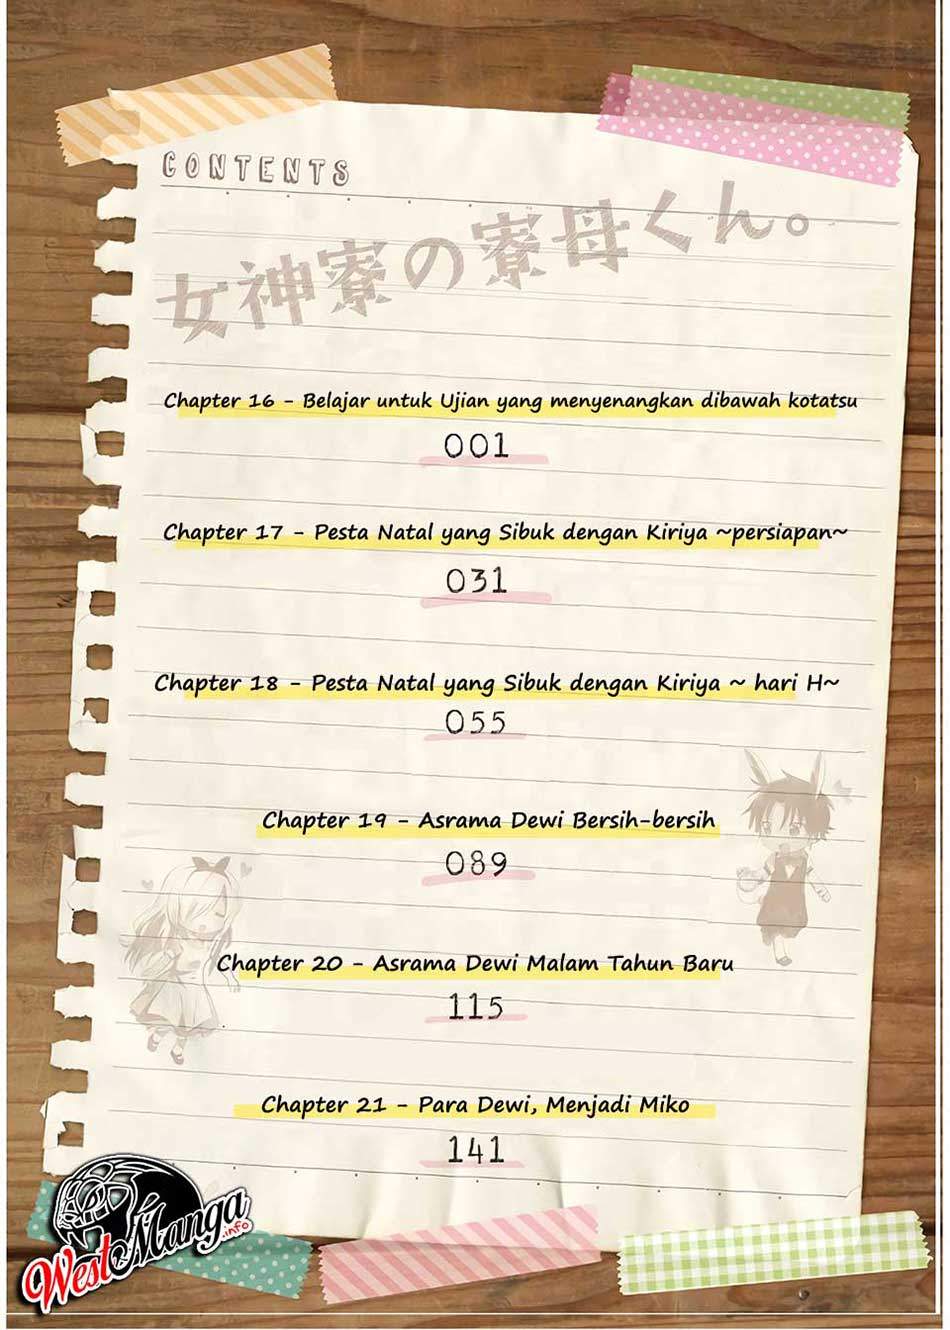 CONTENTS
女神寮の寮母くん。
Chapter 16 - Belajar untuk Ujian yang menyenangkan dibawah kotatsu
001
Chapter 17 - Pesta Natal yang Sibuk dengan Kiriya ~persiapan~
031
Chapter 18 - Pesta Natal yang Sibuk dengan Kiriya ~ hari H~
055
Chapter 19 - Asrama Dewi Bersih-bersih
089
Chapter 20 - Asrama Dewi Malam Tahun Baru
115
Chapter 21 - Para Dewi, Menjadi Miko
141
WestManga.info